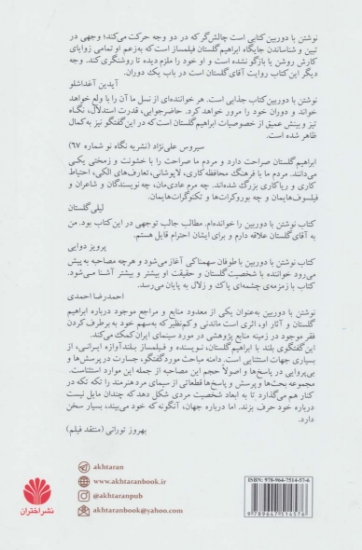 نوشتن با دوربین کتابی است چالش‌گر که در دو وجه حرکت می‌کند؛ وجهی در
تبیین و شناساندن جایگاه ابراهیم گلستان فیلمساز است که به‌زعم او تمامی زوایای
کارش روشن یا بازگو نشده است و او خود را ملزم دیده تا روشنگری کند. وجه
دیگر این کتاب روایت آقای گلستان است در باب یک دوران.
آیدین آغداشلو
نوشتن با دوربین کتاب جذابی است. هر خواننده‌ای از نسل ما آن را با ولع خواهد
خواند و دوران خود را مرور خواهد کرد. حاضرجوابی، قدرت استدلال، نگاه
تیز و بینش عمیق از خصوصیات ابراهیم گلستان است که در این گفتگو نیز به‌کمال
ظاهر شده است.
سیروس علی‌نژاد (نشریه نگاه نو شماره ۶۷)
ابراهیم گلستان صراحت دارد و مردم ما صراحت را با خشونت و زمختی یکی
می‌دانند. مردم ما با فرهنگ محافظه‌کاری، لاپوشانی، تعارف‌های الکی، احتیاط
کاری و ریاکاری بزرگ شده‌اند. چه مردم عادی‌مان، چه نویسندگان و شاعران و
فیلسوف‌هایمان و چه بوروکرات‌ها و تکنوکرات‌هایمان.
لیلی گلستان
کتاب نوشتن با دوربین را خوانده‌ام. مطالب جالب توجهی در این کتاب بود. من
به آقای گلستان علاقه دارم و برای ایشان احترام قایل هستم.
پرویز دوایی
کتاب نوشتن با دوربین با طوفان سهمناکی آغاز می‌شود و هرچه مصاحبه به پیش
می‌رود خواننده با شخصیت گلستان و حقیقت او بیشتر و بیشتر آشنا می‌شود.
کتاب با زمزمه‌ی چشمه‌ای پاک و زلال به پایان می‌رسد.
احمدرضا احمدی
نوشتن با دوربین به‌عنوان یکی از معدود منابع و مراجع موجود درباره ابراهیم
گلستان و آثار او، اثری است ماندنی و کم‌نظیر که به‌سهم خود به برطرف کردن
فقر موجود در زمینه منابع پژوهشی در مورد سینمای ایران کمک می‌کند.
این گفتگوی بلند با ابراهیم گلستان، نویسنده و فیلمساز بلندآوازه ایرانی، از
بسیاری جهات استثنایی است. دامنه مباحث مورد گفتگو، جسارت در پرسش‌ها و
بی‌پروایی در پاسخ‌ها و اصولاً حجم این مصاحبه از جمله این موارد استثناست.
مجموعه بحث‌ها و پرسش و پاسخ‌ها قطعاتی از سیمای مرد هنرمند را تکه تکه در
کنار هم می‌گذارد تا به ابعاد شخصیت مردی شکل دهد که چندان مایل نیست
درباره خود حرف بزند. اما درباره جهان، آنگونه که خود می‌بیند، بسیار سخن
دارد.
بهروز تورانی (منتقد فیلم)
akhtaran
www.akhtaranbook.ir
@akhtaranpub
akhtaranbook@yahoo.com
نشر اختران
ISBN: 978-964-7514-57-6
9 789647 514576